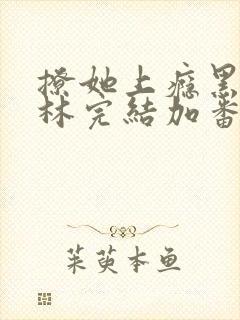 撩她上癮黑
林完結加番
茱萸本鱼